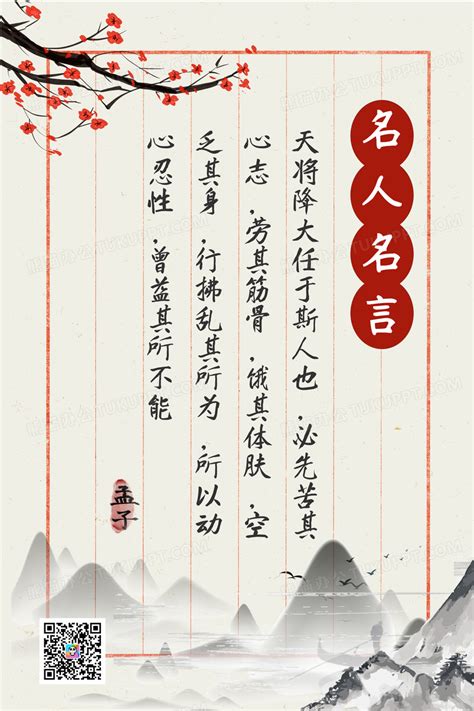 名人名言
天将降大任于斯人也,必先苦其
心志,劳其筋骨,饿其体肤,空
乏其身,行拂乱其所为,所以动
心忍性,曾益其所不能
孟子